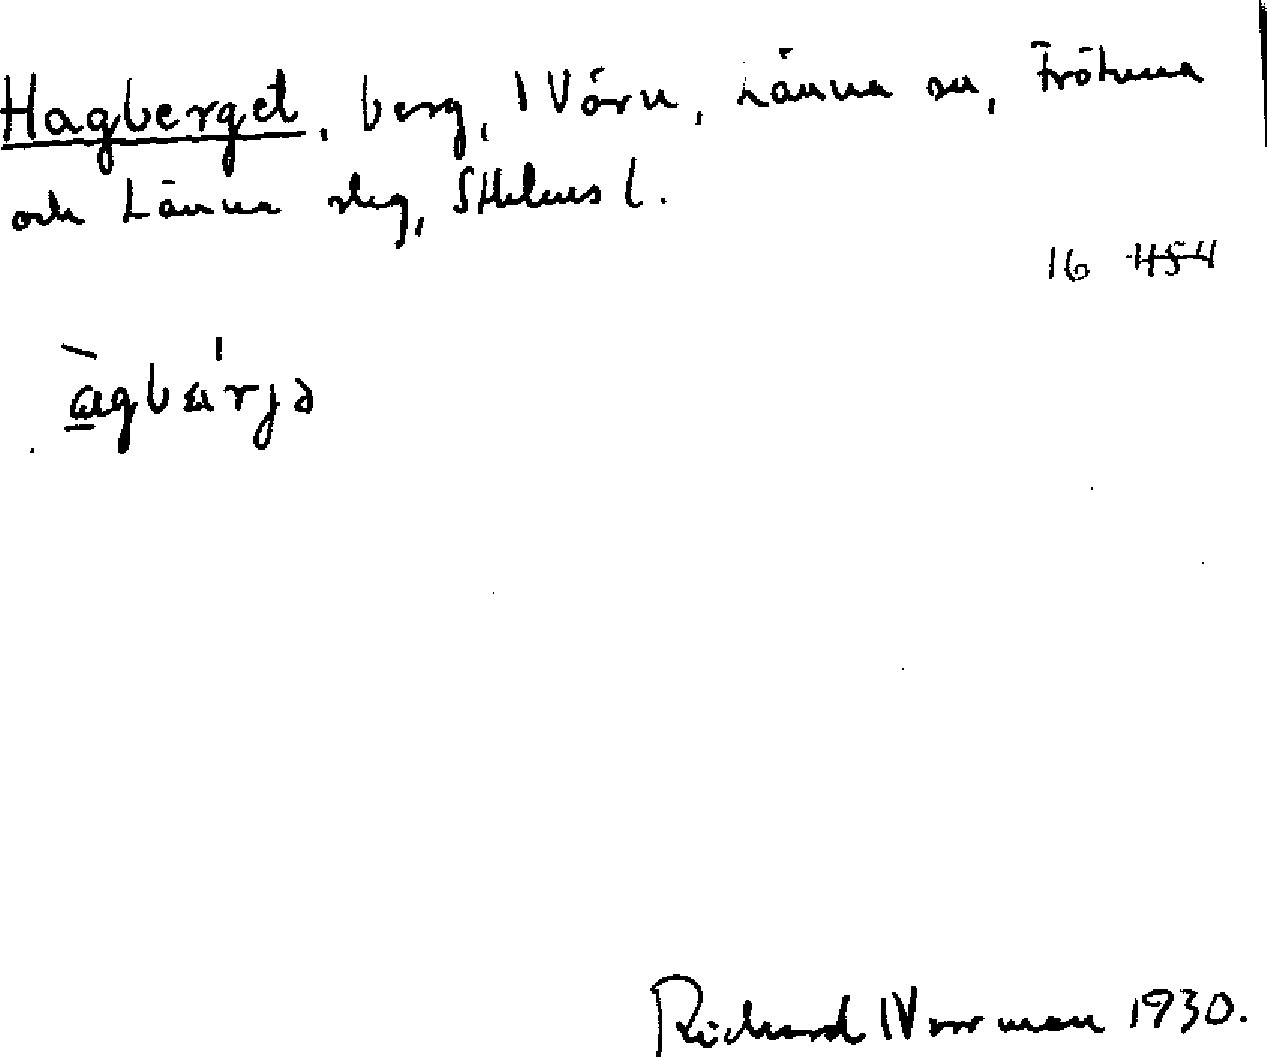 Hagberget, berg, Norn, Länna sn, Frötuna
och Länna slg, Sthlms l.
16 454
ɑgbærjə
Richard Norrman 1930.